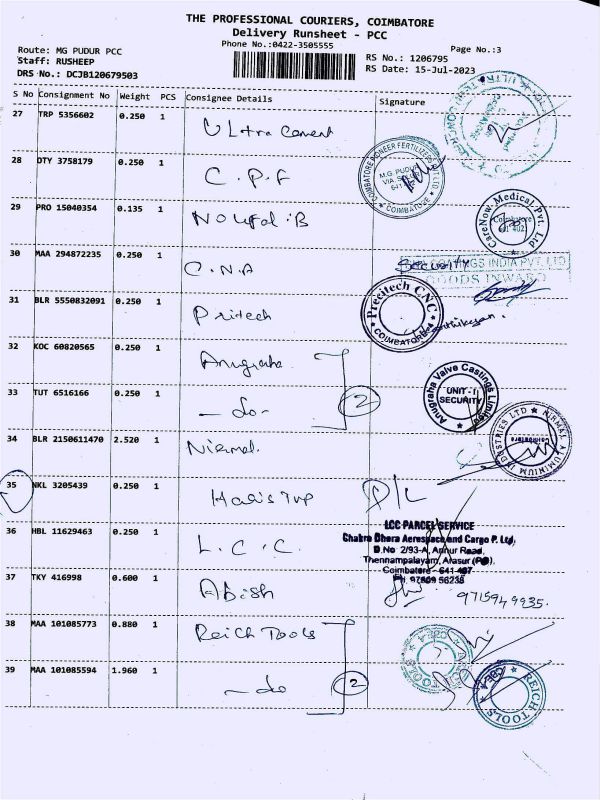 THE PROFESSIONAL COURIERS, COIMBATORE
Delivery Runsheet - PCC
Phone No.:0422-3505555
Page No.:3
Route: MG PUDUR PCC
Staff: RUSHEEP
DRS No.: DCJB120679503
RS No.: 1206795
RS Date: 15-Jul-2023
S No Consignment No Weight PCS Consignee Details Signature
27 TRP 5356602 0.250 1 Ultra Cement
28 DTY 3758179 0.250 1 C.P.F
COIMBATORE PIONEER FERTILIZERS PVT LTD
M.G. PUDUR
COIMBATORE
29 PRO 15040354 0.135 1 Noufal.B
CareNow Medical Pvt. Ltd
Coimbatore
641 402
30 MAA 294872235 0.250 1 C.N.A
Security
INDIA PVT. LTD
GOODS INWARD
31 BLR 5550832091 0.250 1 Pritech
Precitech CNC
COIMBATORE-4
32 KOC 60820565 0.250 1 Anugraha
33 TUT 6516166 0.250 1 - do - 2
Anugraha Valve Castings Limited
UNIT - I
SECURITY
34 BLR 2150611470 2.520 1 Nirmal.
NIRMAL ALUMINIUM INDUSTRIES LTD
Coimbatore
35 NKL 3205439 0.250 1 D/L
36 HBL 11629463 0.250 1 L.C.C.
LCC PARCEL SERVICE
Chakra Dhara Aerospace and Cargo P. Ltd,
D.No 2/93-A, Annur Road,
Thennampalayam, Arasur (PO),
Coimbatore - 641 407
Ph. 97809 56236
37 TKY 416998 0.600 1 Abish
9715949935.
38 MAA 101085773 0.880 1 Reich Tools
39 MAA 101085594 1.960 1 - do 2
REICH TOOLS
CBE